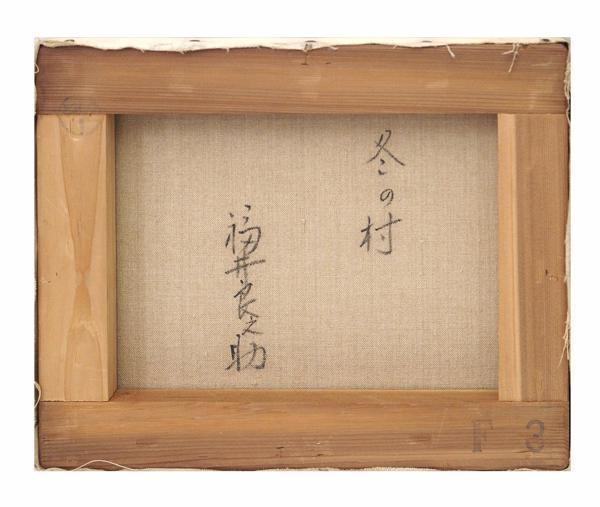 冬の村
福井良之助
F 3